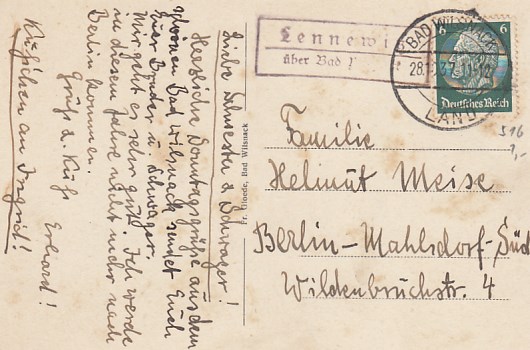 Liebe Schwester u. Schwager!
Herzliche Sonntagsgrüße aus dem
schönen Bad Wilsnack sendet Euch
Euer Bruder u. Schwager.
Mir geht es sehr gut. Ich werde
in diesem Jahre nicht mehr nach
Berlin kommen.
Gruß u. Kuß
Erhard!
Küßchen an Ingrid!
Fr. Gloede, Bad Wilsnack
Lennewi
über Bad
BAD WILSNACK
28.
LAND
6 6
Deutsches Reich
516
Familie
Helmut Meise
Berlin-Mahlsdorf-Süd
Wildenbruchstr. 4